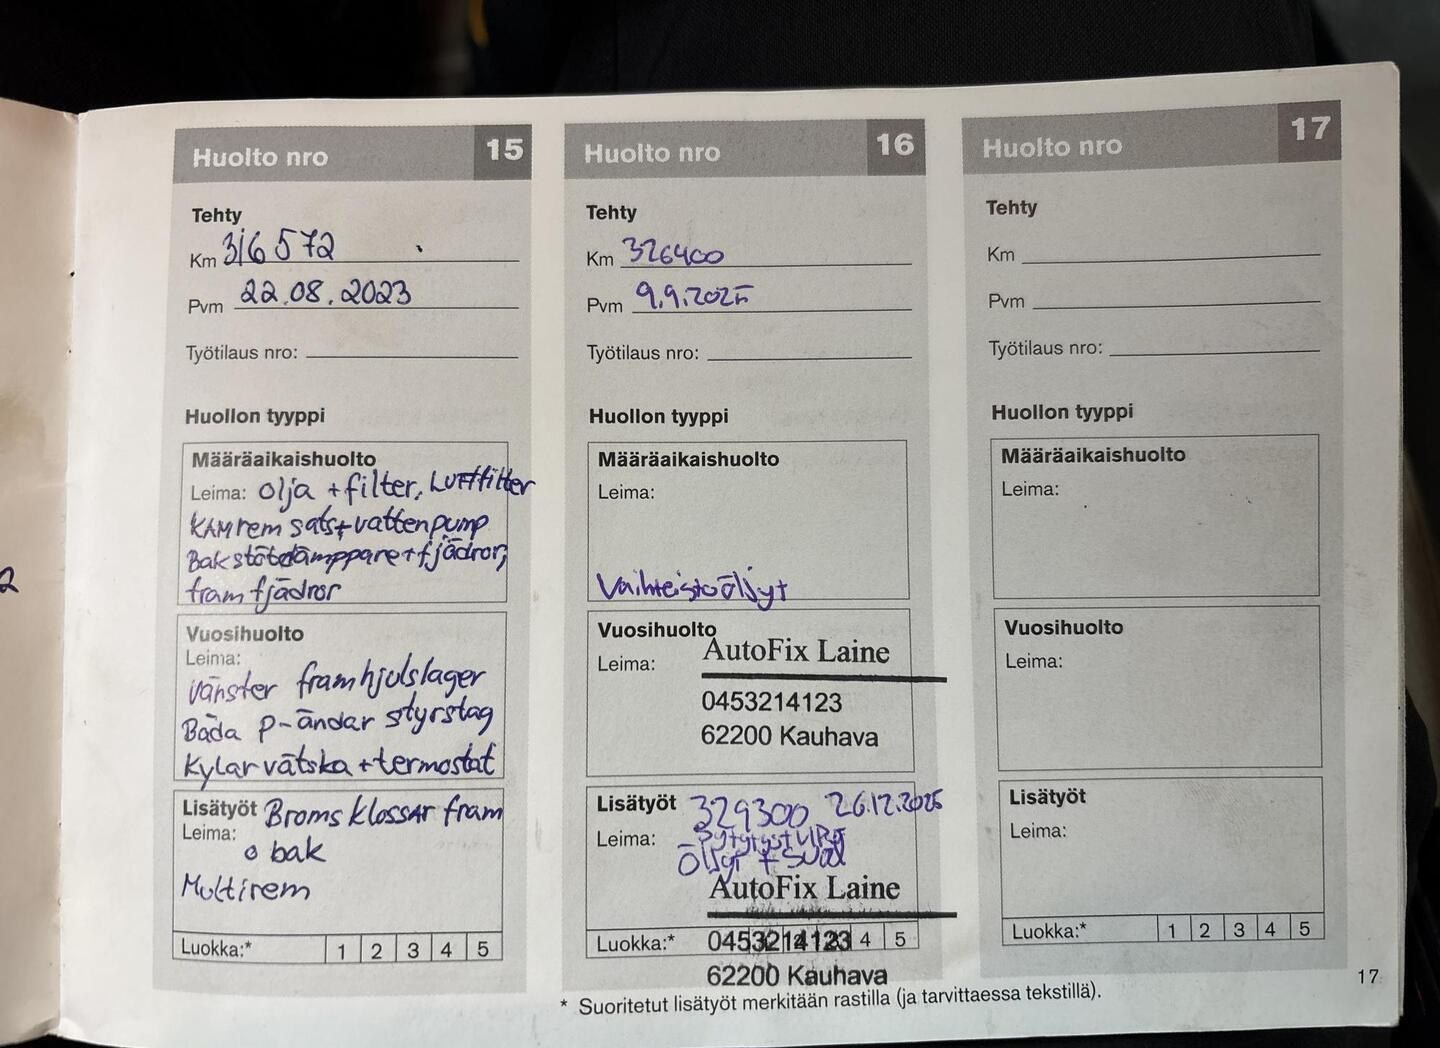 Huolto nro 15
Tehty
Km 316 572
Pvm 22.08.2023
Työtilaus nro:
Huollon tyyppi
Määräaikaishuolto
Leima: olja + filter, Luftfilter
KAMrem sats + vattenpump
Bak stötdämppare + fjädror,
fram fjädror
Vuosihuolto
Leima:
vänster framhjulslager
Båda p-ändar styrstag
Kylarvätska + termostat
Lisätyöt Broms klossar fram
Leima:
o bak
Multirem
Luokka:* 1 2 3 4 5
Huolto nro 16
Tehty
Km 326400
Pvm 9.9.2025
Työtilaus nro:
Huollon tyyppi
Määräaikaishuolto
Leima:
Vaihteistoöljyt
Vuosihuolto
Leima:
AutoFix Laine
0453214123
62200 Kauhava
Lisätyöt 329300 26.12.2025
Leima:
Öljyt + suod
AutoFix Laine
Luokka:* 4 5
0453214123
62200 Kauhava
Huolto nro 17
Tehty
Km
Pvm
Työtilaus nro:
Huollon tyyppi
Määräaikaishuolto
Leima:
Vuosihuolto
Leima:
Lisätyöt
Leima:
Luokka:* 1 2 3 4 5
* Suoritetut lisätyöt merkitään rastilla (ja tarvittaessa tekstillä).
17
2